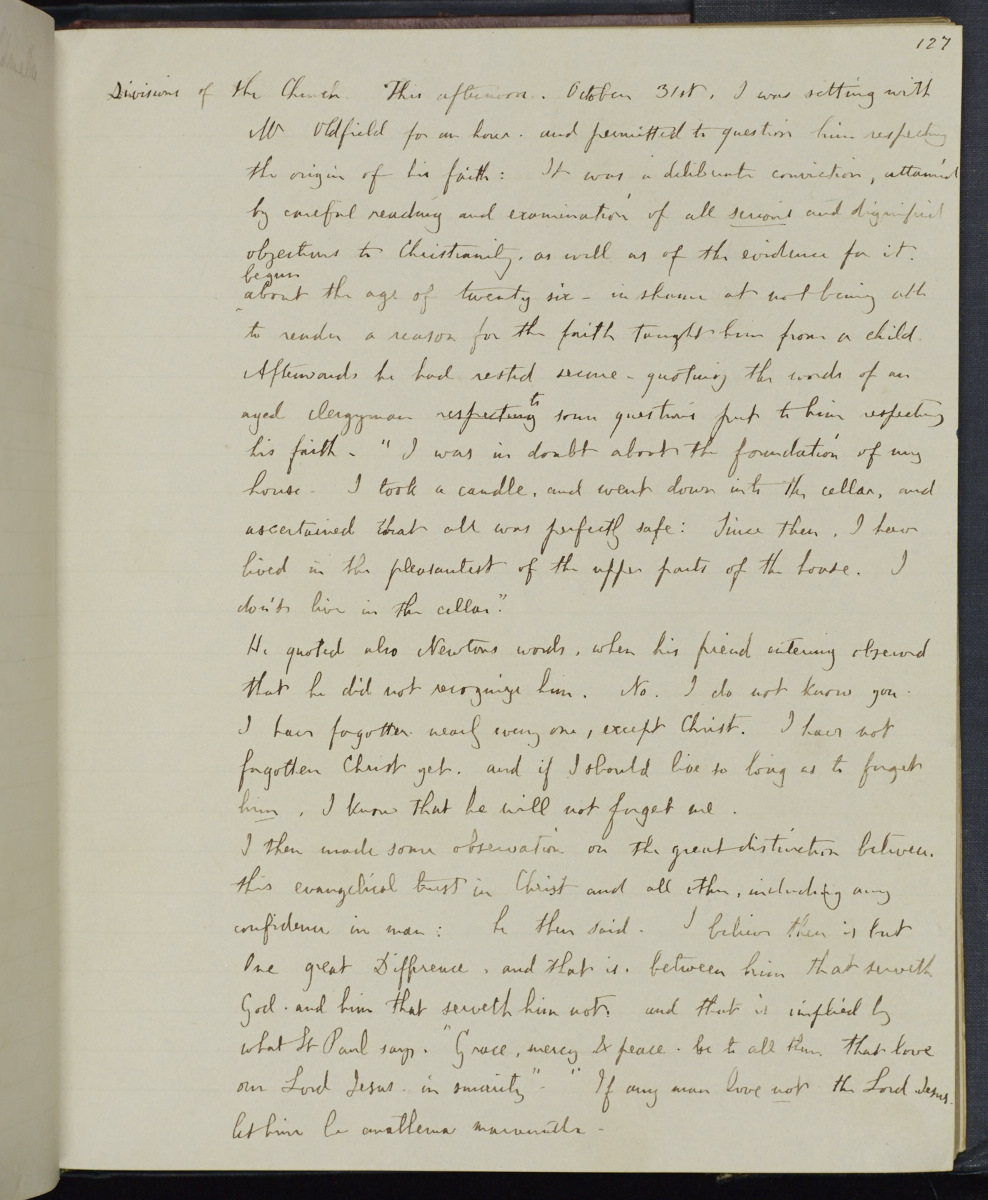 127
Divisions of the Church. This afternoon. October 31st, I was sitting with
Mr Oldfield for an hour. and permitted to question him respecting
the origin of his faith: It was a deliberate conviction, attained
by careful reading and examination of all serious and dignified
objections to Christianity, as well as of the evidence for it.
begun
about the age of twenty six - in shame at not being able
to render a reason for the faith taught him from a child.
Afterwards he had rested secure - quoting the words of an
to
aged clergyman respecting some questions put to him respecting
his faith. "I was in doubt about the foundation of my
house - I took a candle, and went down into the cellar, and
ascertained that all was perfectly safe: Since then, I have
lived in the pleasantest of the upper parts of the house. I
don't live in the cellar."
He quoted also Newtons words, when his friend entering observed
that he did not recognize him. No. I do not know you.
I have forgotten nearly every one, except Christ. I have not
forgotten Christ yet. and if I should live so long as to forget
him, I know that he will not forget me.
I then made some observation on the great distinction between
this evangelical trust in Christ and all other, including any
confidence in man: he then said - I believe there is but
One great Difference. and that is. between him that serveth
God. and him that serveth him not. and that is implied by
what St Paul says. "Grace, mercy & peace. be to all them that love
our Lord Jesus in sincerity" - "If any man love not the Lord Jesus.
let him be anathema maranatha -